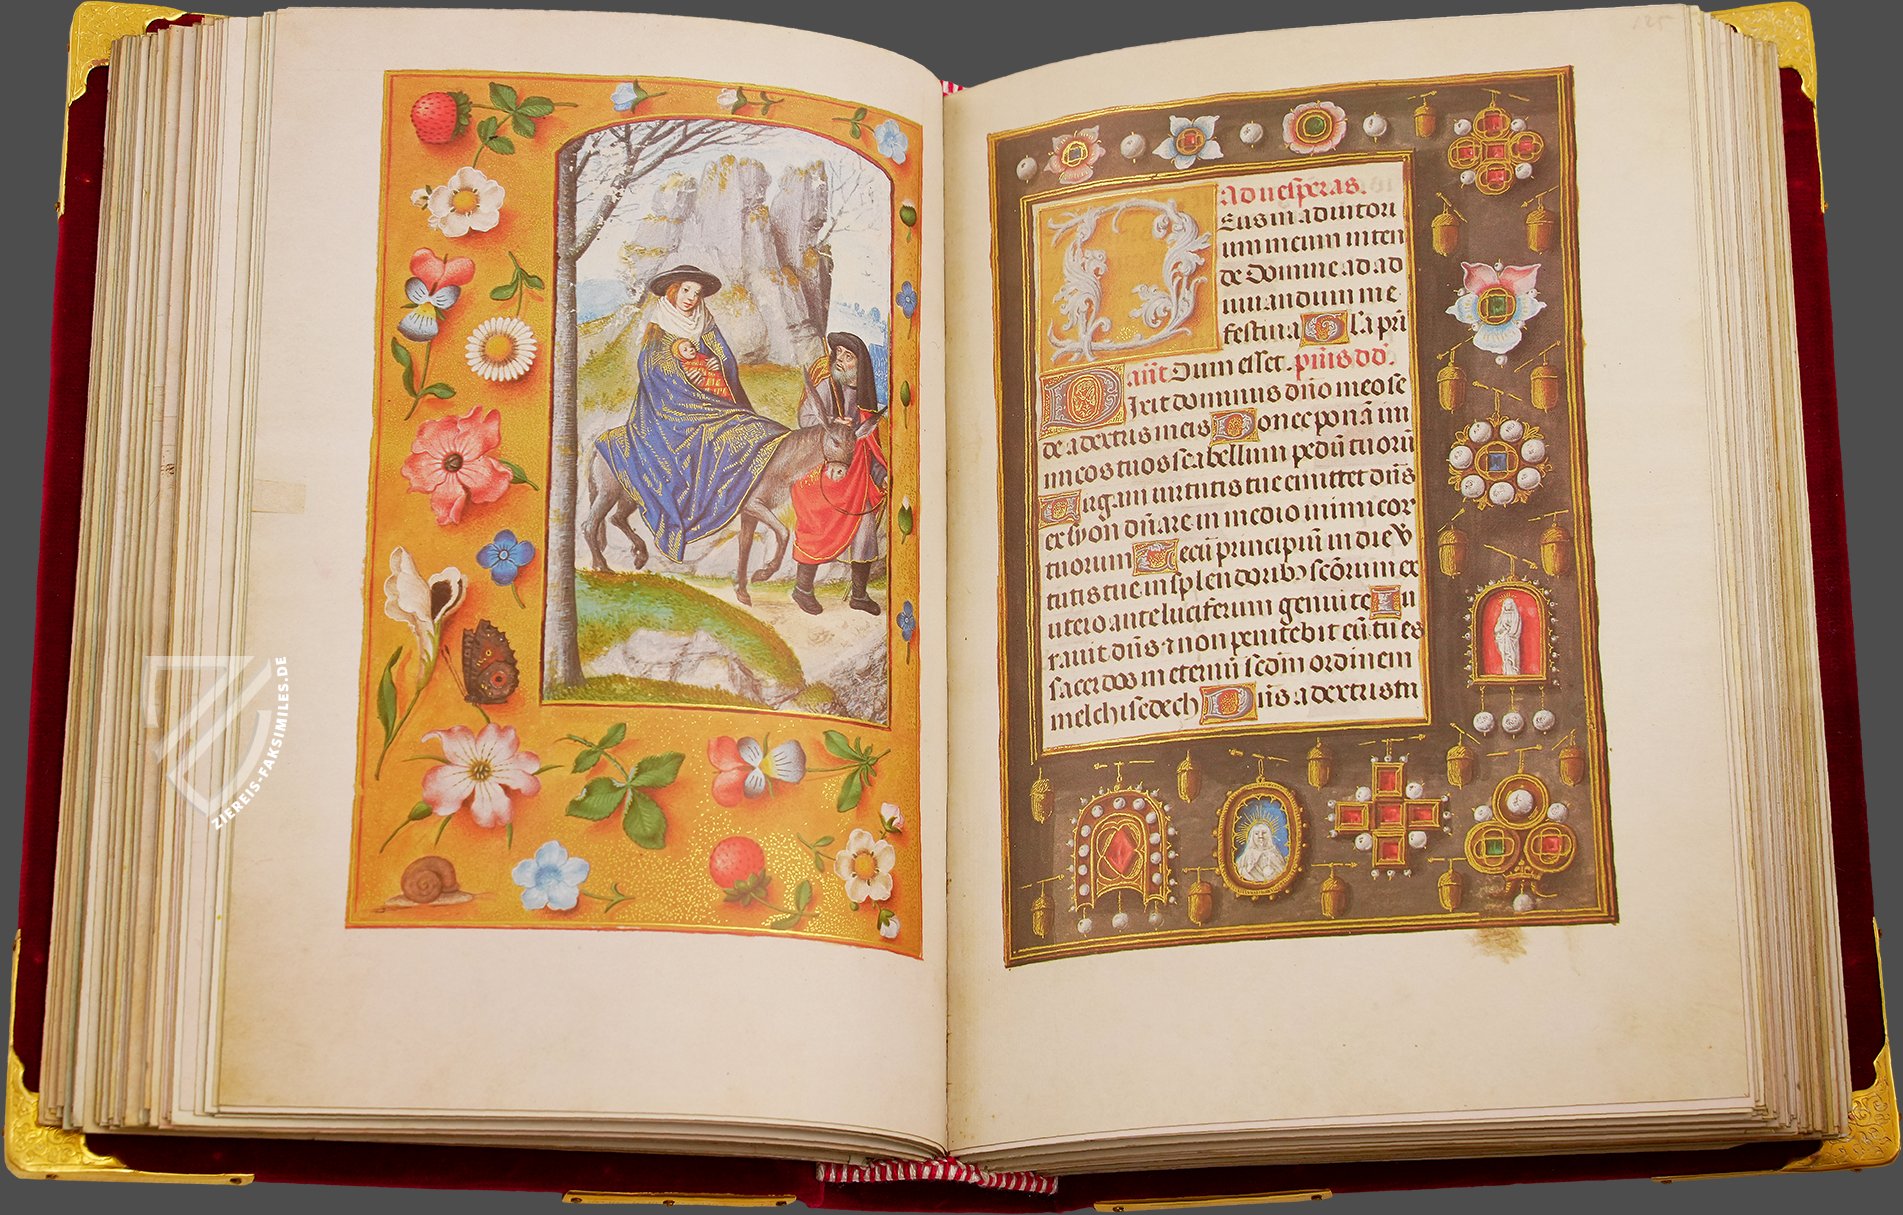 125
Ad uesperas.
Eus in adiutori
um meum inten
de Domine ad ad
iuuandum me
festina Gl'a pri
Sicut Dum esset. pius dd.
Dixit dominus dño meo se
de a dextris meis Donec ponā in
imicos tuos scabellum pedū tuorū
Virgam uirtutis tue emittet dñs
ex syon dñare in medio inimicor
tuorum Tecū principiū in die v
tutis tue in splendoribꝫ scōrum ex
utero ante luciferum genui te Iu
rauit dñs ⁊ non penitebit eū tu es
sacerdos in eternū scdm ordinem
melchisedech Dñs a dextris tu
ZIEREIS-FAKSIMILES.DE